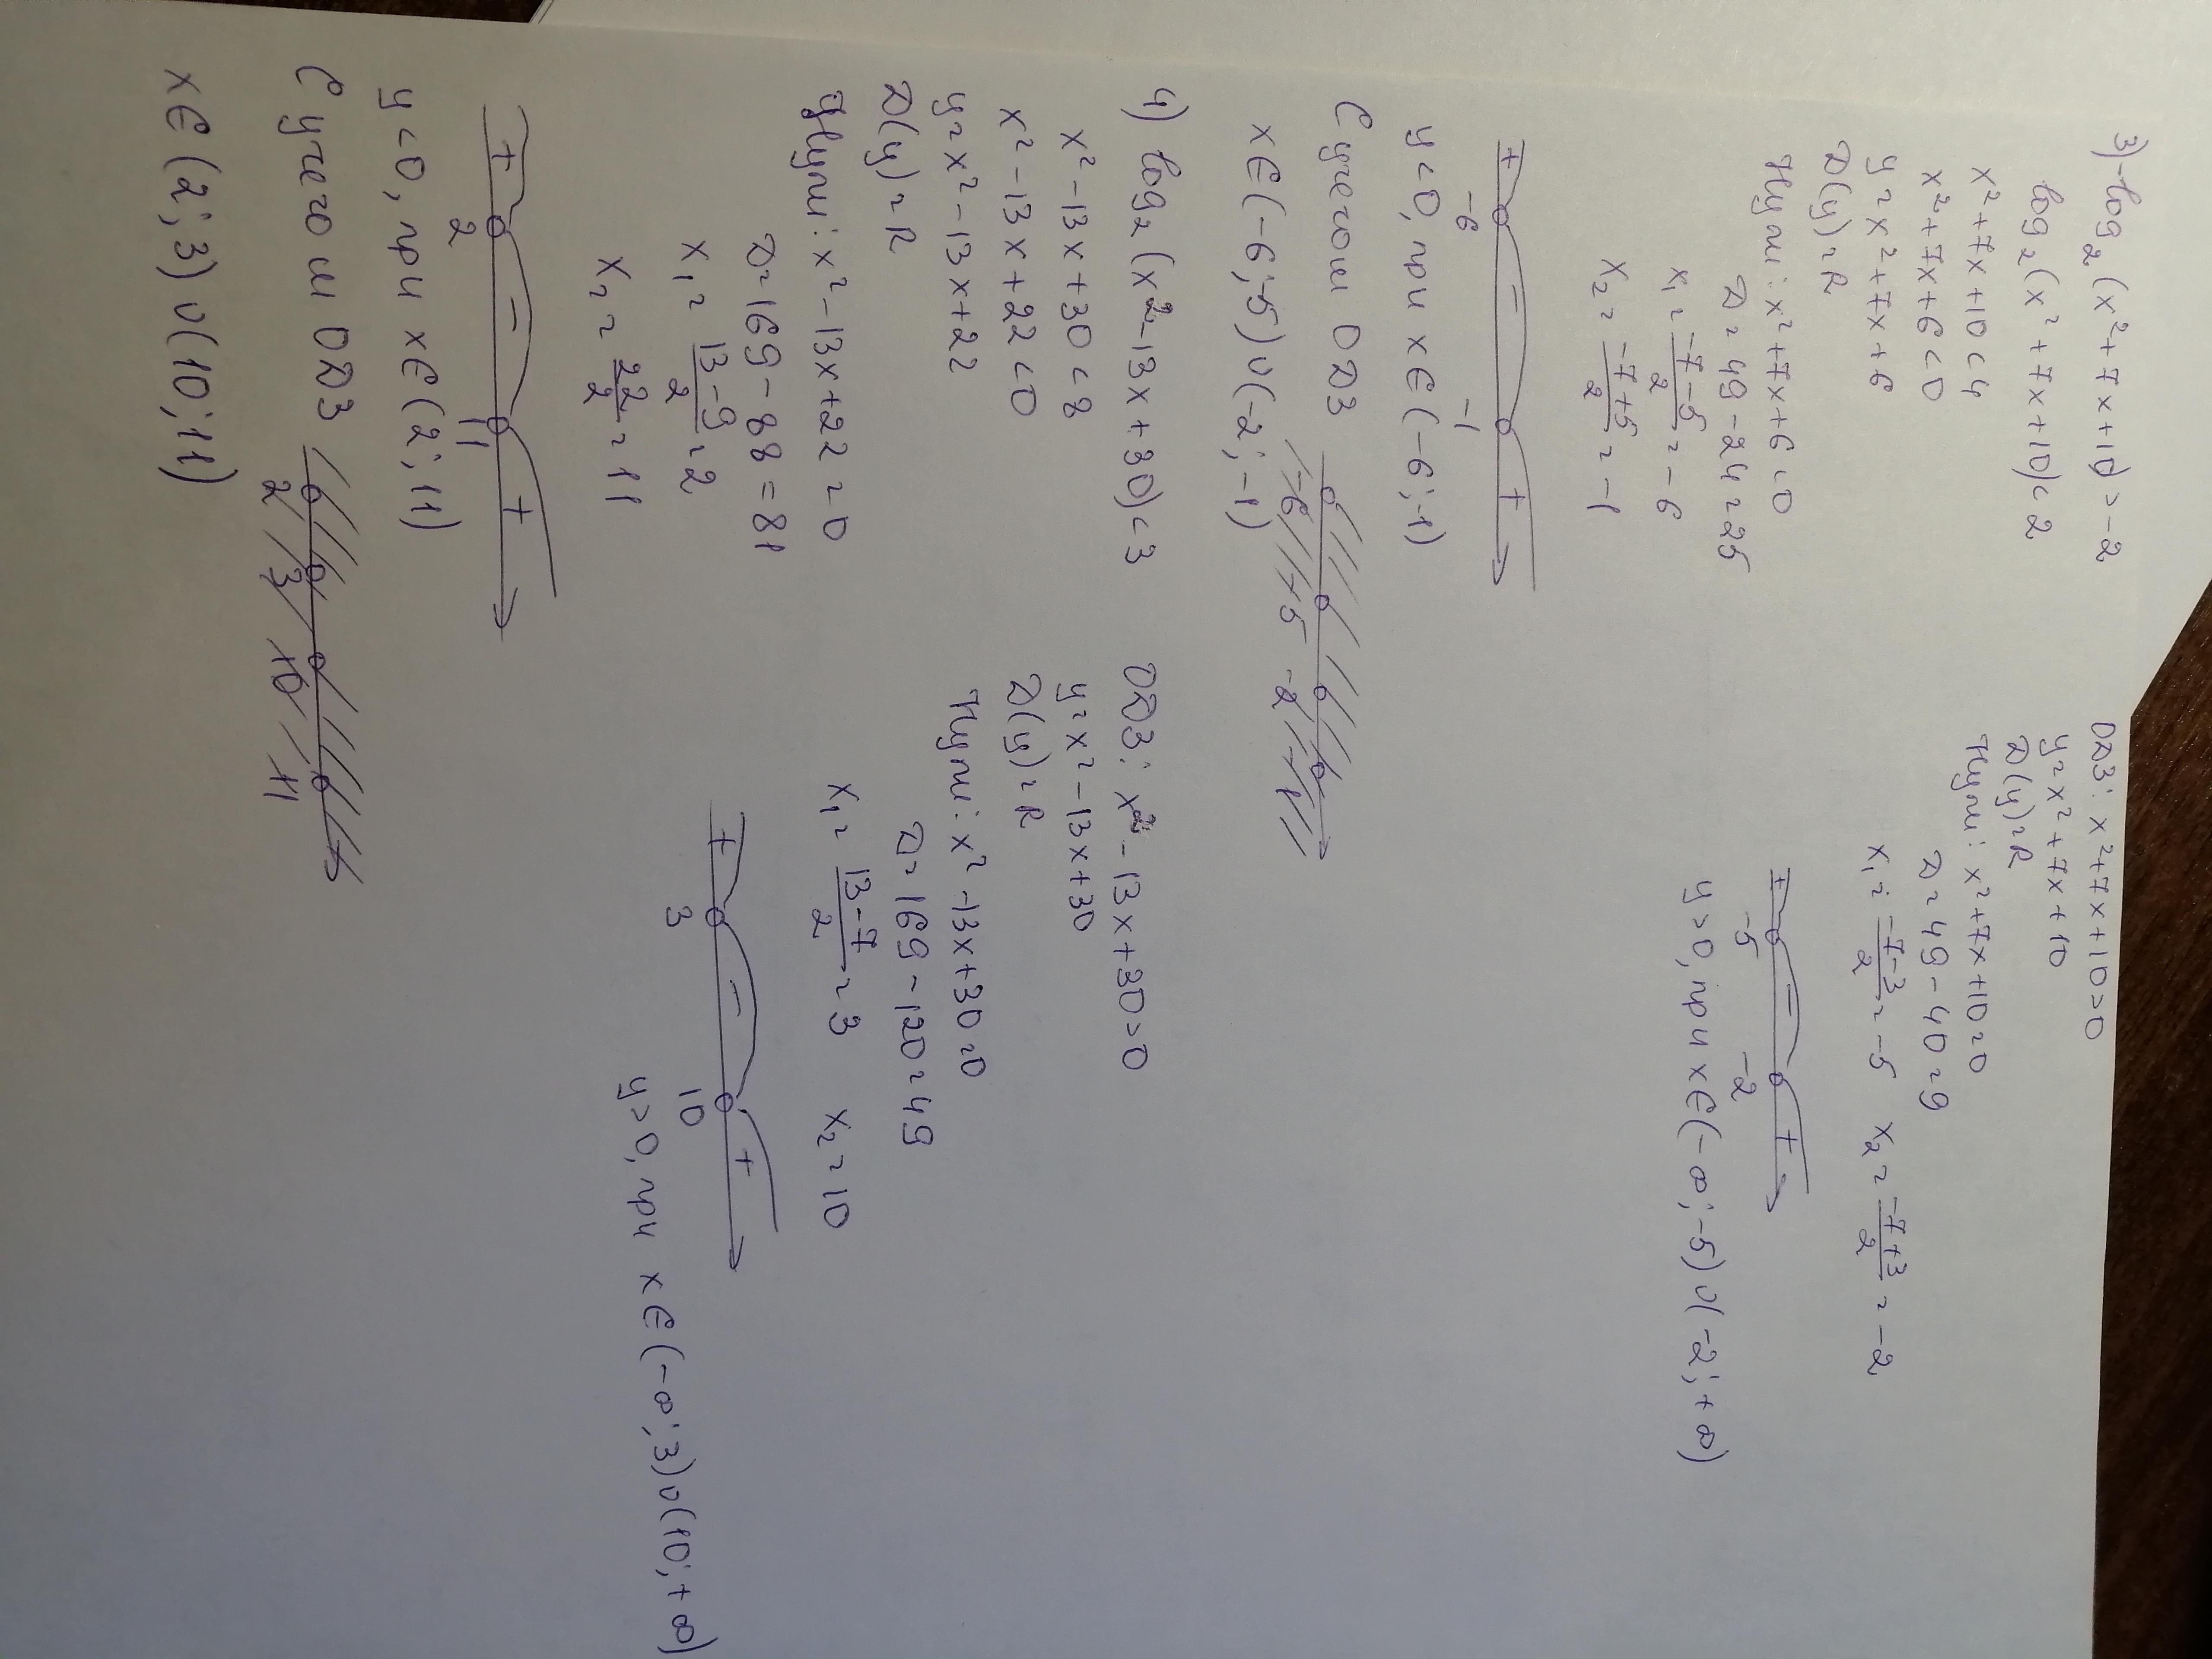 3) -log₂(x²+7x+10)>-2
log₂(x²+7x+10)<2
x²+7x+10<4
x²+7x+6<0
y=x²+7x+6
D(y)=R
Нули: x²+7x+6=0
D=49-24=25
x₁=(-7-5)/2=-6
x₂=(-7+5)/2=-1
+ - +
-6 -1
y<0, при x∈(-6;-1)
С учетом ОДЗ
-6 -5 -2 -1
x∈(-6;-5)∪(-2;-1)
ОДЗ: x²+7x+10>0
y=x²+7x+10
D(y)=R
Нули: x²+7x+10=0
D=49-40=9
x₁=(-7-3)/2=-5 x₂=(-7+3)/2=-2
+ - +
-5 -2
y>0, при x∈(-∞;-5)∪(-2;+∞)
4) log₂(x²-13x+30)<3
x²-13x+30<8
x²-13x+22<0
y=x²-13x+22
D(y)=R
Нули: x²-13x+22=0
D=169-88=81
x₁=(13-9)/2=2
x₂=22/2=11
+ - +
2 11
y<0, при x∈(2;11)
С учетом ОДЗ
2 3 10 11
x∈(2;3)∪(10;11)
ОДЗ: x²-13x+30>0
y=x²-13x+30
D(y)=R
Нули: x²-13x+30=0
D=169-120=49
x₁=(13-7)/2=3 x₂=10
+ - +
3 10
y>0, при x∈(-∞;3)∪(10;+∞)